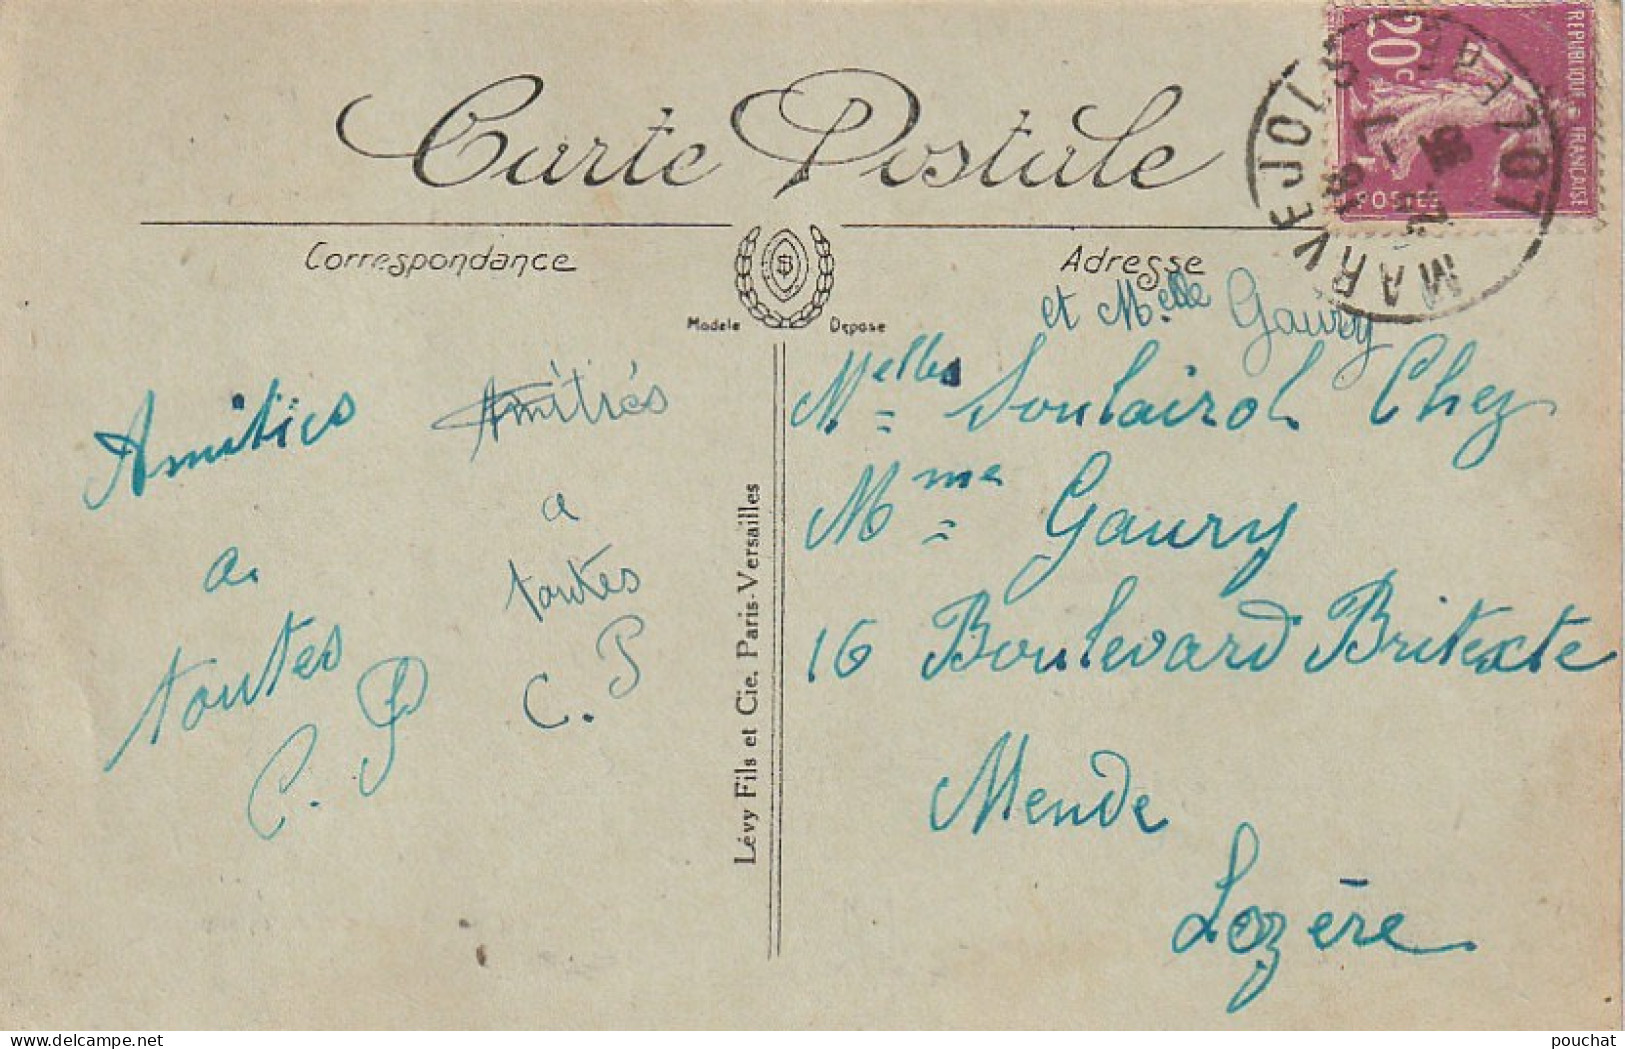 Carte Postale
Correspondance
Modèle Déposé
Adresse
20c
REPUBLIQUE FRANÇAISE
POSTES
MARVEJOLS
LOZERE
et Melle Gaury
Melles Soulairol Chez
Mme Gaury
16 Boulevard Britexte
Mende
Lozère
Amitiés
a
toutes
C. P
Amitiés
a
toutes
C. P
Lévy Fils et Cie, Paris-Versailles
pouchat